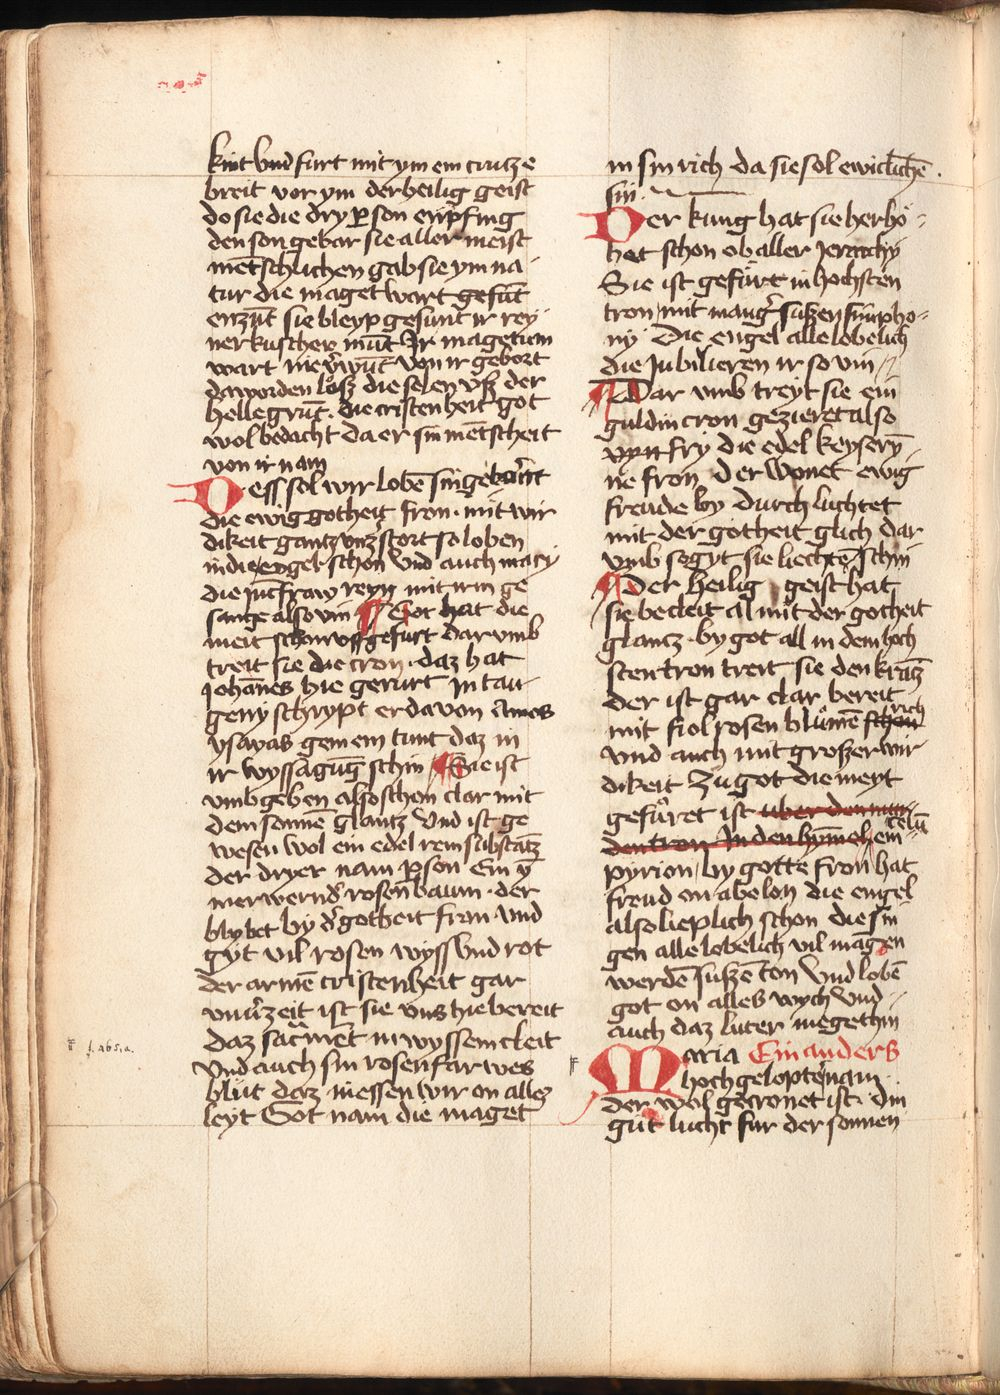 kint vnd furt mit ym ein crutze
breit vor ym der heilig geist
do sie die dry person enpfing
den son gebar sie aller meist
mētschlichen gab sie ym na-
tur die maget wart gefūt
enzūt sie bleyp gesunt ir rey
ner kuscher mūt Ir magetum
wart nie v'wūt von ir gebort
da worden loͤß die selen vß der
helle grūt. die cristenheit got
wol bedacht da er sin mētscheit
von ir nam
Dess sol wir lobē sin geburt
die ewig gotheit fron. mit wir
dikeit gantz vnz'stort so loben
in die engel schon vnd auch mary
die jūcfraw reyn mit irm ge
sange also vin ¶ Got hat die
meit schon vff gefurt dar vmb
treit sie die cron. daz hat
Johānes hie gerurt In tau-
geny schrypt er da von Amos
ysayas gem ein tunt daz in
ir wyssagūg schin ¶ Sie ist
vmbgeben also schon clar mit
dem sonnē glantz vnd ist ge
wesen wol ein edel rein substātz
der dryer nam person Ein y
mer wernd' rosenbaum. der
blybet by d' gotheit fron vnd
gyt vil rosen wyss vnd rot
der armē cristenheit gar
zeit ist sie vns hie bereit
daz sacmēt in wyssem cleit
vnd auch sin rosenfarwes
blut daz niessen wir on alles
leyt Got nam die maget
f. 265.a.
in sin rich da sie sol ewiclichē.
sin.
Der kung hat sie her hoͤ-
hot schon ob aller Jerarchy
Sie ist gefuͤrt in hochsten
tron mit mang' sußen simpho-
ny Die engel alle lobelich
die Jubilieren ir so vin
¶ Dar vmb treyt sie ein
guldin cron gezieret also
fry die edel keysery
ne fron der wonet ewig
freude by durchluchtet
mit der gotheit glich dar
vmb so gyt sie liechtē schin
¶ Der heilig geist hat
sie becleit al mit der gotheit
glantz. by got all in dem hoch
sten tron treit sie den krātz
der ist gar clar bereit
mit fiol rosen bluͤmē schon rich
vnd auch mit großer wir
dikeit Zu got die meyt
gefuͤret ist uber den
den tron In den hymel em celū
pyrion by gotte fron hat
freud on abelon die engel
also lieplich schon die sin
gen alle lobelich vil mangen
werdē sußē ton vnd lobē
got on alles wych vnd
auch daz luter megethin
Maria Ein anders
hochgelopter nam
der wol gecronet ist. din
gut lucht fur der sonnen